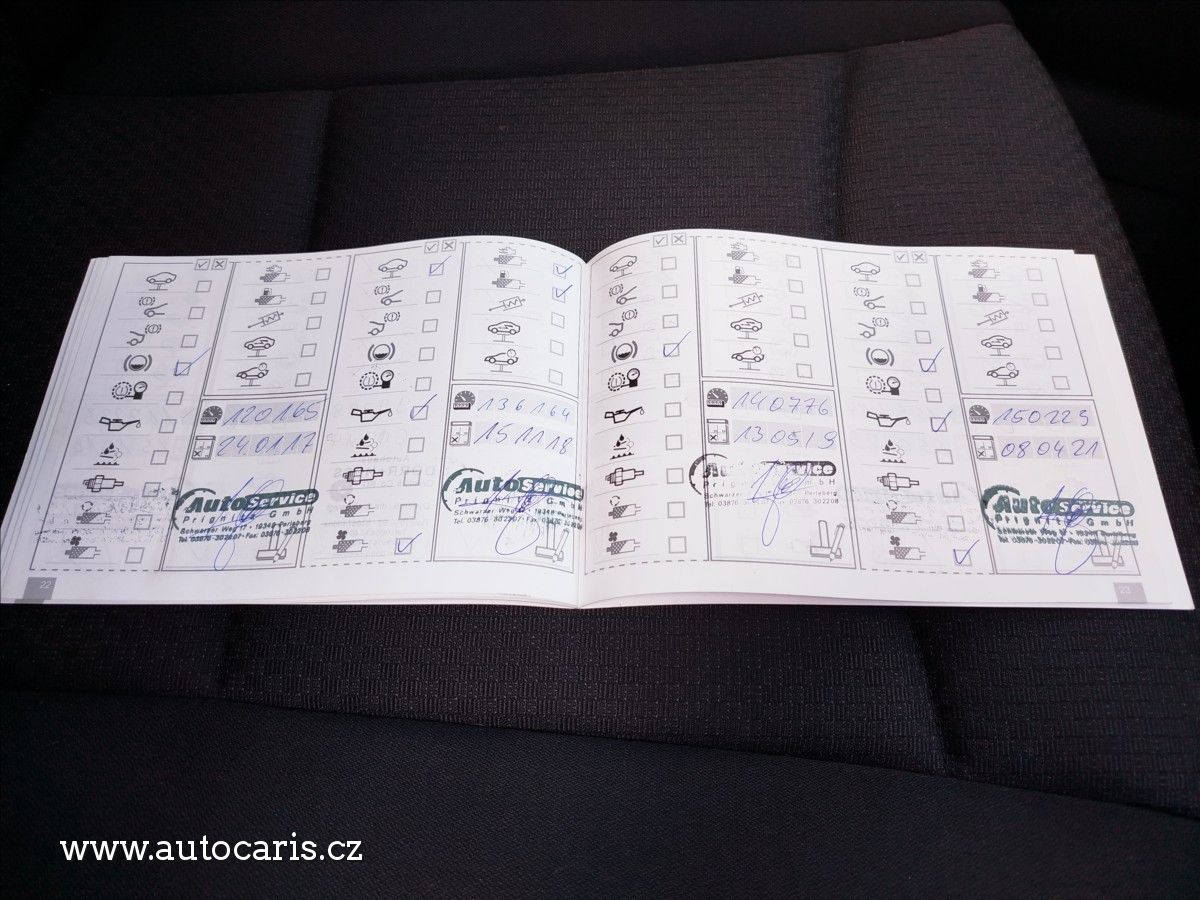 120165
24.01.17
AutoService
Prignitz GmbH
Schwarzer Weg 17 · 19348 Perleberg
Tel. 03876 - 302207 · Fax: 03876 - 302208
136164
15 11 18
AutoService
Prignitz GmbH
Schwarzer Weg 17 · 19348
Tel. 03876 - 302207 · Fax: 03876
140776
13 05 19
AutoService
GmbH
Schwarzer Perleberg
Tel. 03876 03876 302208
150229
08 04 21
AutoService
Prignitz GmbH
Tel. 03876 - 302207 · Fax: 03876
22
23
www.autocaris.cz